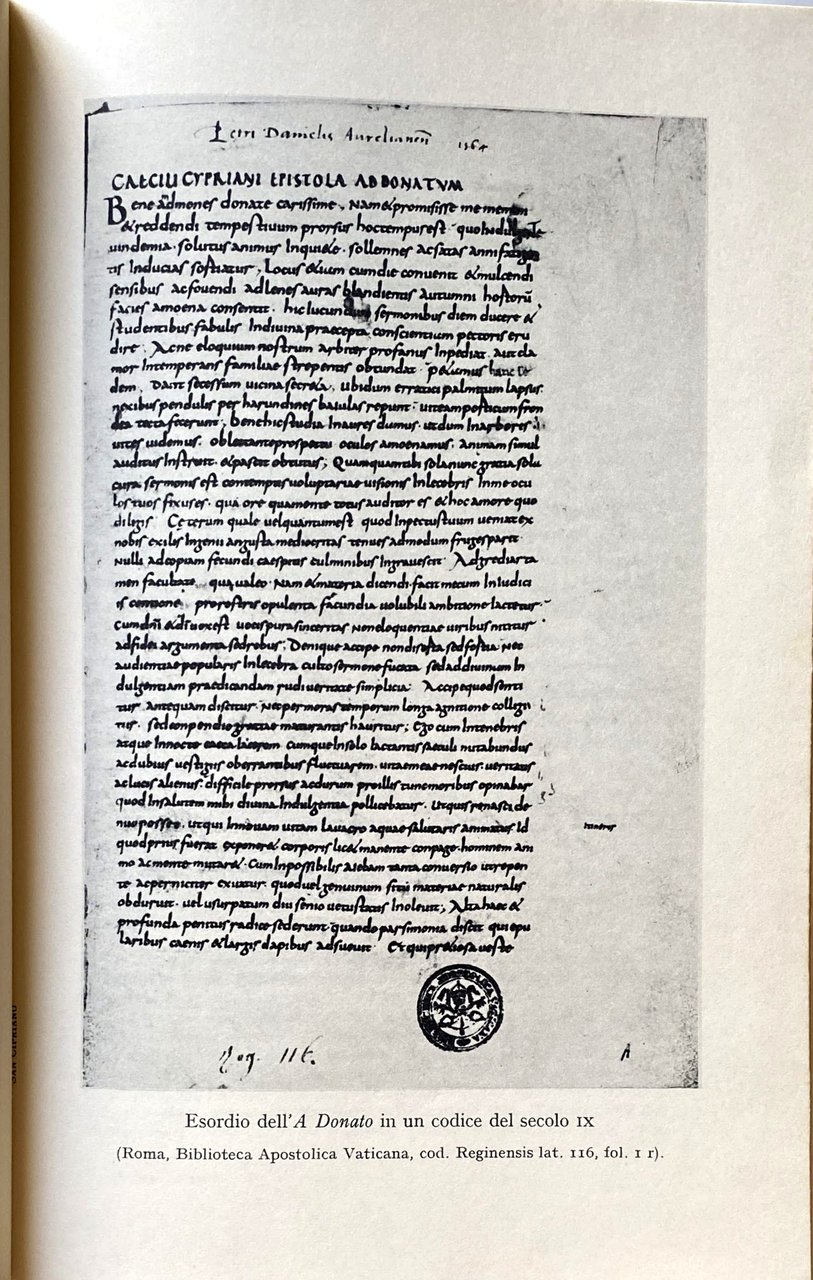 Petri Danielis Aurelianeñ 1564
CAECILII CYPRIANI EPISTOLA AD DONATUM
Bene admones donate carissime. Nam & promisisse me memini
& reddendi tempestivum prorsus hoc tempus est. quo Indulgente
uindemia. solutus animus In quiete. sollennes ac statas anni fatigan
tis Inducias sortiatur, Locus & iam cum die conuenit & mulcendi
sensibus ac fouendi ad lenes auras blandientis autumni hortorū
facies amoena consentit. hic Iucundum sermonibus diem ducere &
studentibus fabulis In diuina praecepta conscientiam pectoris eru
dire. Ac ne eloquium nostrum arbiter profanus Inpediat. aut cla
mor Intemperans familiae strepentis obtundat. petamus hanc se
dem. Dant secessum uicina secreta. ubi dum erratici palmitum lapsus.
nexibus pendulis per harundines baiulas repunt. uiteam porticum fron
dea tecta fecerunt; bene hic studia In aures damus. ut dum In arbores &
uites uidemus. oblectante prospectu oculos amoenamus. animam simul
auditus Instruit. & pascit obtutus; Quamquam tibi sola nunc gratia sola
cura sermonis est contemptis uoluptariae uisionis Inlecebris In me ocu
los tuos fixus es. qua ore qua mente totus auditor es & hoc amore quo
diligis Ceterum quale uel quantum est quod In pectus tuum ueniat ex
nobis exilis Ingenii angusta mediocritas tenues admodum fruges parit.
nulli ad copiam fecundi caespitis culminibus Ingrauescit. Adgrediar ta
men facultate. qua ualeo. Nam & materia dicendi facit mecum In Iudici
is contione. pro rostris opulenta facundia uolubili ambitione Iactetur.
Cum dñi & dõ uox est uocis pura sinceritas non eloquentiae uiribus nititur
ad fidei argumenta sed rebus; Denique accipe non diserta sed fortia. Nec
audientiae popularis Inlecebra culto sermone fucata sed ad diuinam In
dulgentiam praedicandam rudi ueritate simplicia. Accipe quod senti
tur antequam discitur. Nec per moras temporum longa agnitione colligi
tur. sed compendio gratiae maturantis hauritur; Ego cum In tenebris
atque In nocte caeca Iacerem. cumque In salo Iactantis saeculi nutabundus
ac dubius uestigiis oberrantibus fluctuarem. uitae meae nescius. ueritatis
ac lucis alienus. difficile prorsus ac durum pro illis tunc moribus opinabar
quod In salutem mihi diuina Indulgentia pollicebatur. ut quis renasci de
nuo posset. utqui In nouam uitam lauacro aquae salutaris animatus Id
quod prius fuerat exponeret & corporis licet manente conpage. hominem ani
mo ac mente mutaret. Cum Inpossibilis aiebam tanta conuersio ut repen
te ac perniciter exuatur. quod uel genuinum situ materiae naturalis
obduruit. uel usurpatum diu senio uetustatis Inoleuit; Alta haec &
profunda penitus radice sederunt quando parsimonia discit qui epu
laribus caenis & largis dapibus adsueuit Et qui pretiosa ueste
Reg. 116.
A
Esordio dell'A Donato in un codice del secolo IX
(Roma, Biblioteca Apostolica Vaticana, cod. Reginensis lat. 116, fol. 1 r).
SAN CIPRIANO